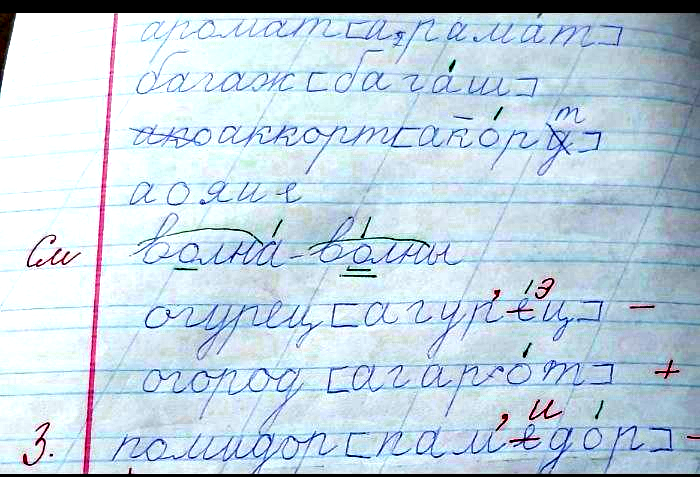 аромат [арамат]
багаж [багаш]
ако аккорт [ак̄орд] т
а о я и е
См волна - волны
огурец [агур'ец] э -
огород [агарот] +
3. помидор [пам'едор] и -